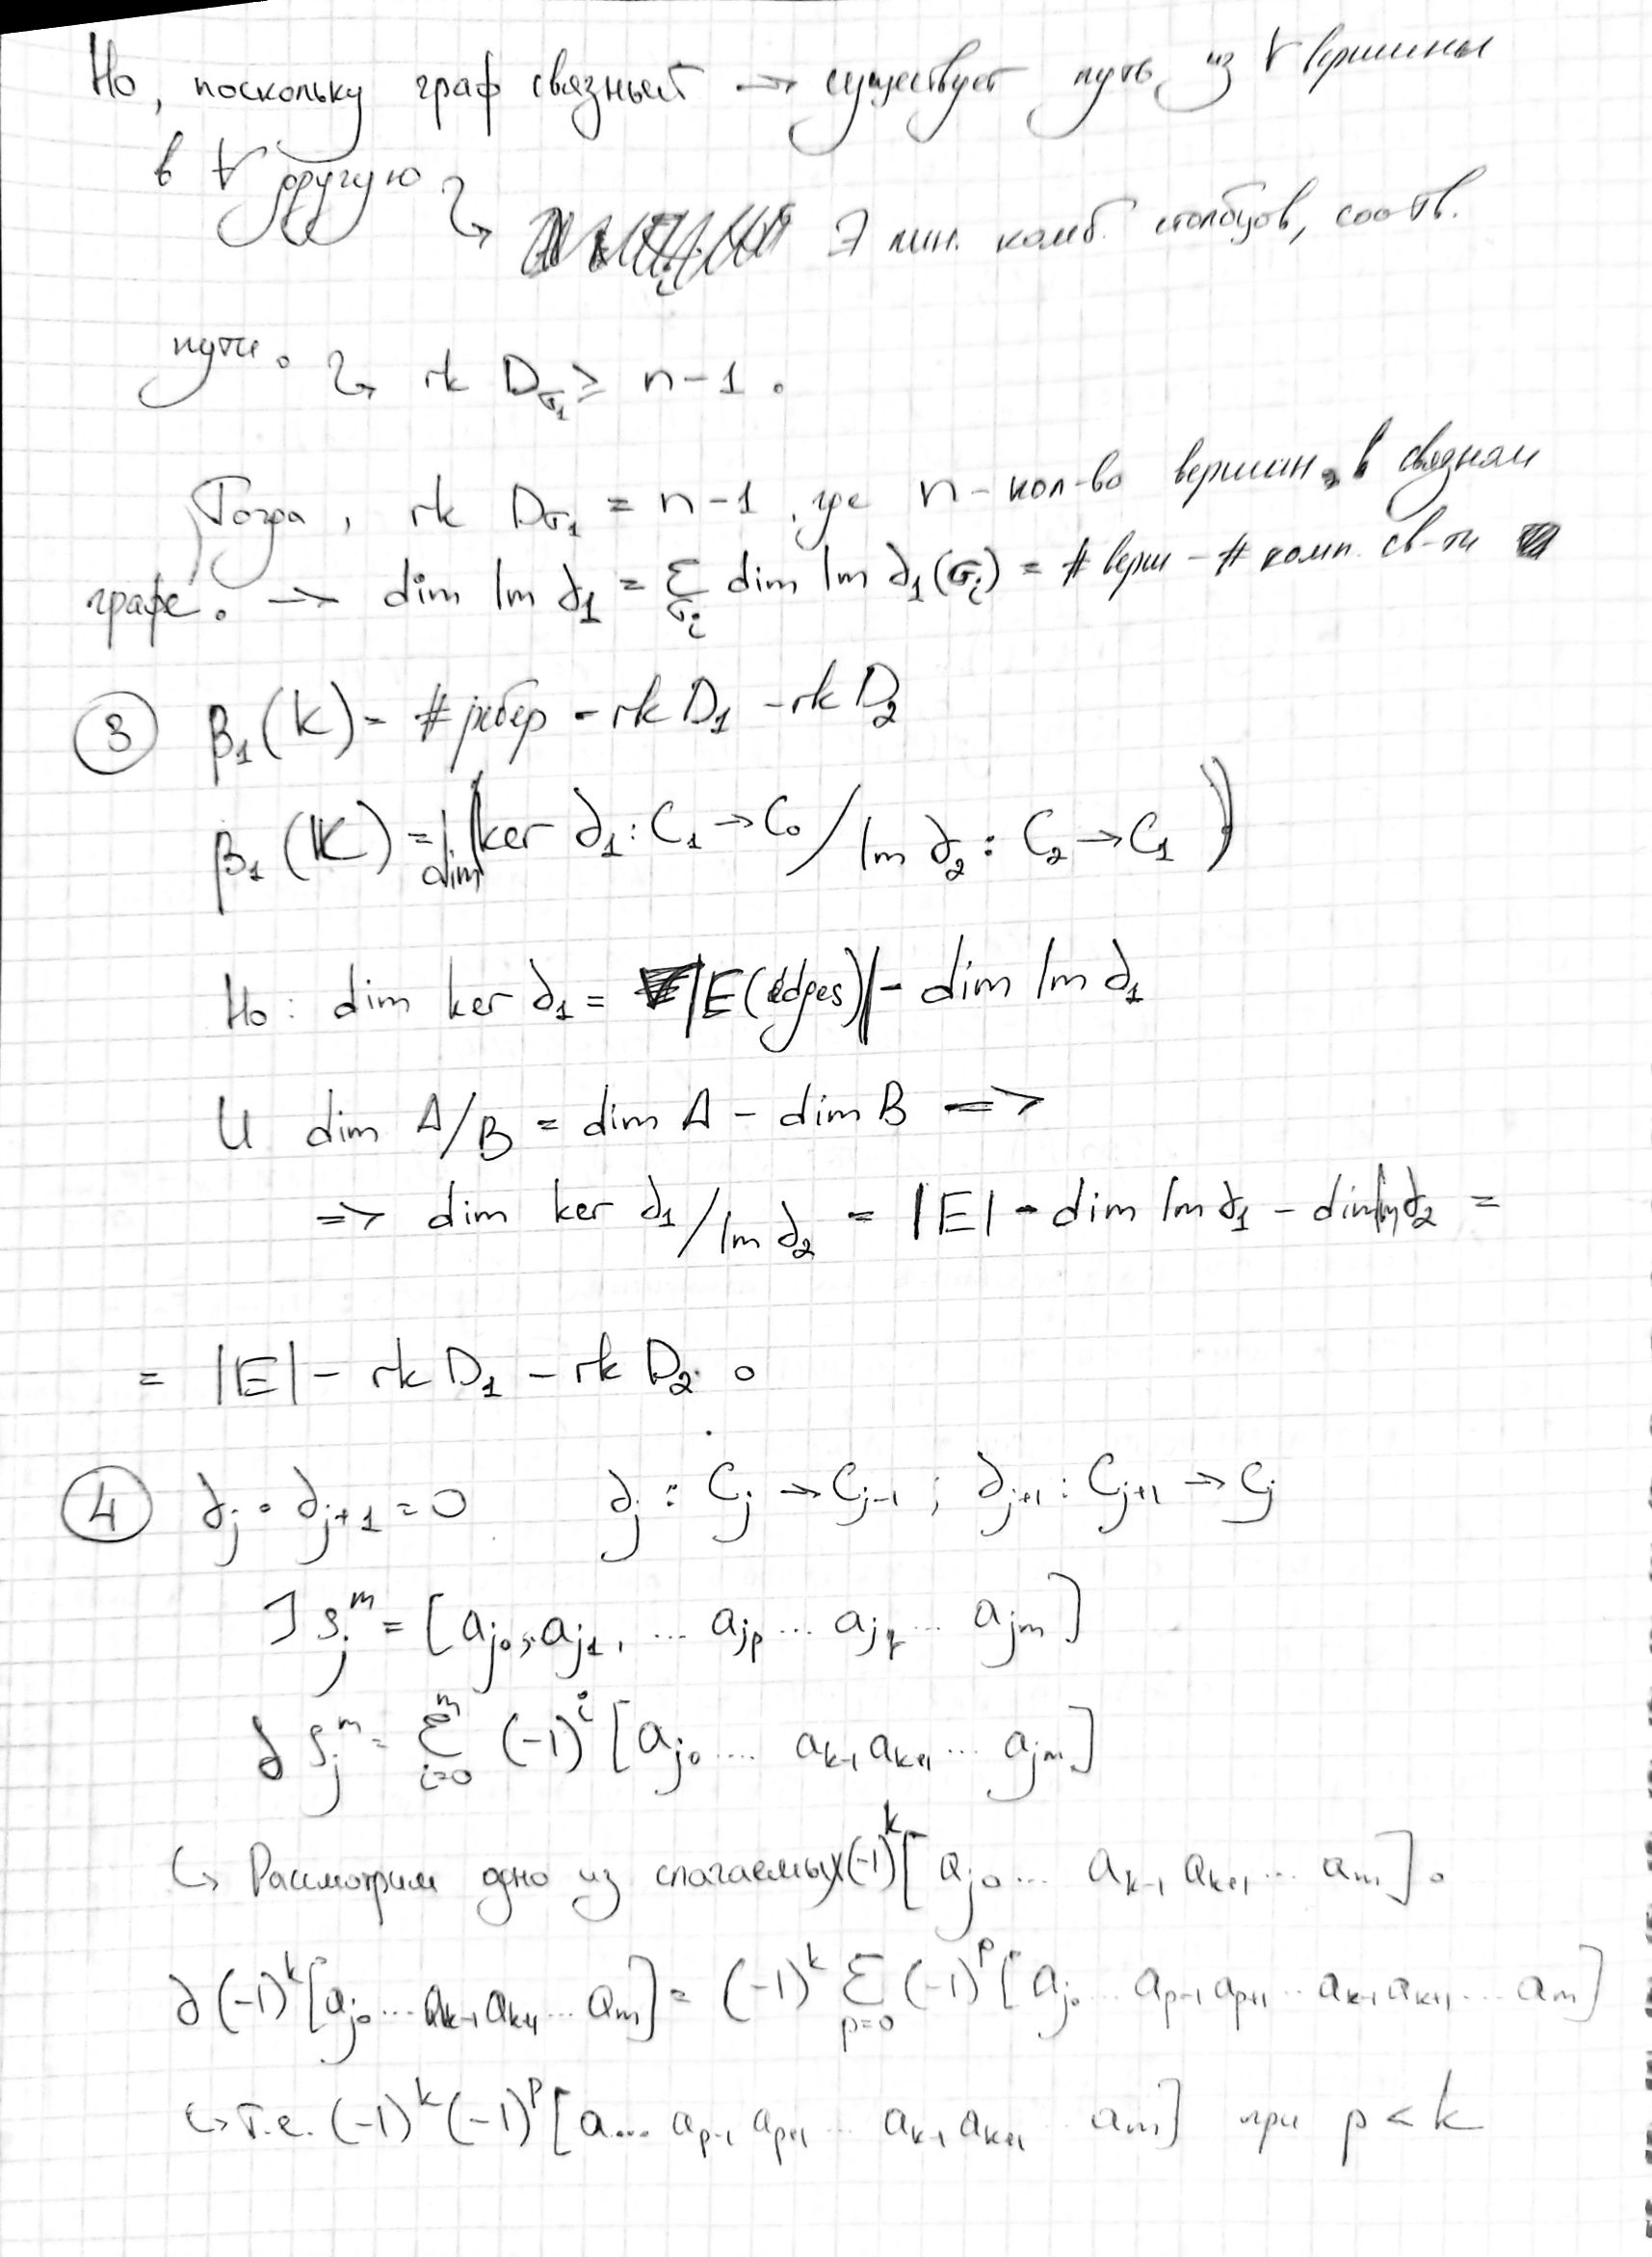 Но, поскольку граф связный → существует путь из ∀ вершины
в ∀ другую ↳ ∃ лин. комб. столбцов, соотв.
пути. ↳ rk D_σ₁ ≥ n-1.
Тогда, rk D_σ₁ = n-1, где n - кол-во вершин в связном
графе. → dim Im ∂₁ = Σ_σᵢ dim Im ∂₁(σᵢ) = # верш - # комп. св-ти
③ β₁(K) = # рёбер - rk D₁ - rk D₂
β₁(K) = dim (ker ∂₁: C₁ → C₀ / Im ∂₂: C₂ → C₁)
Но: dim ker ∂₁ = |E(edges)| - dim Im ∂₁
И dim A/B = dim A - dim B =>
=> dim ker ∂₁/Im ∂₂ = |E| - dim Im ∂₁ - dim Im ∂₂ =
= |E| - rk D₁ - rk D₂.
④ ∂_j ∘ ∂_{j+1} = 0 ∂_j: C_j → C_{j-1}; ∂_{j+1}: C_{j+1} → C_j
] S_j^m = [a_{j0}, a_{j1}, ... a_{jp} ... a_{jq} ... a_{jm}]
∂ S_j^m = Σ_{i=0}^m (-1)^i [a_{j0} ... a_{k-1} a_{k+1} ... a_{jm}]
↳ Рассмотрим одно из слагаемых (-1)^k [a_{j0} ... a_{k-1} a_{k+1} ... a_m].
∂(-1)^k [a_{j0} ... a_{k-1} a_{k+1} ... a_m] = (-1)^k Σ_{p=0} (-1)^p [a_{j0} ... a_{p-1} a_{p+1} ... a_{k-1} a_{k+1} ... a_m]
↳ т.е. (-1)^k (-1)^p [a ... a_{p-1} a_{p+1} ... a_{k-1} a_{k+1} ... a_m] при p < k